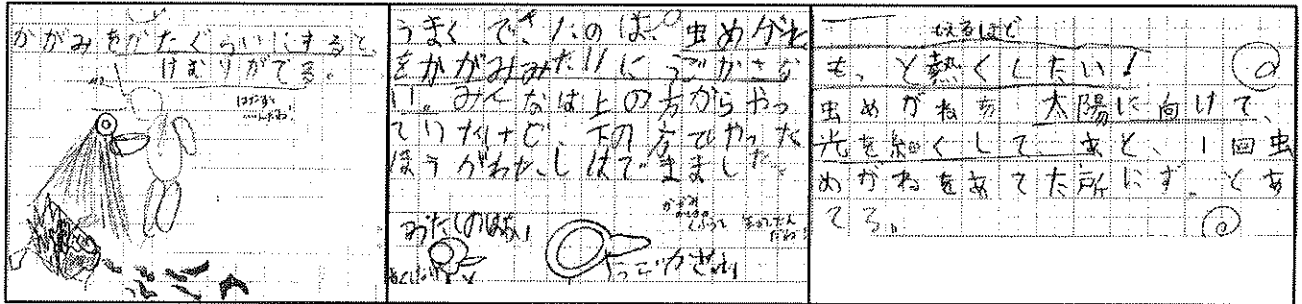 かがみをかたぐらいにすると、
けむりがでる。
うまくできたのは、虫めがね
をかがみみたいにうごかさな
い。みんなは上の方からやっ
ていたけど、下の方でやった
ほうがわたしはできました。
わたしのはあい
うごかさない
もえるほど
もっと熱くしたい!
虫めがねを太陽に向けて、
光を細くして、あと、1回虫
めがねをあてた所にずっとあ
てる。